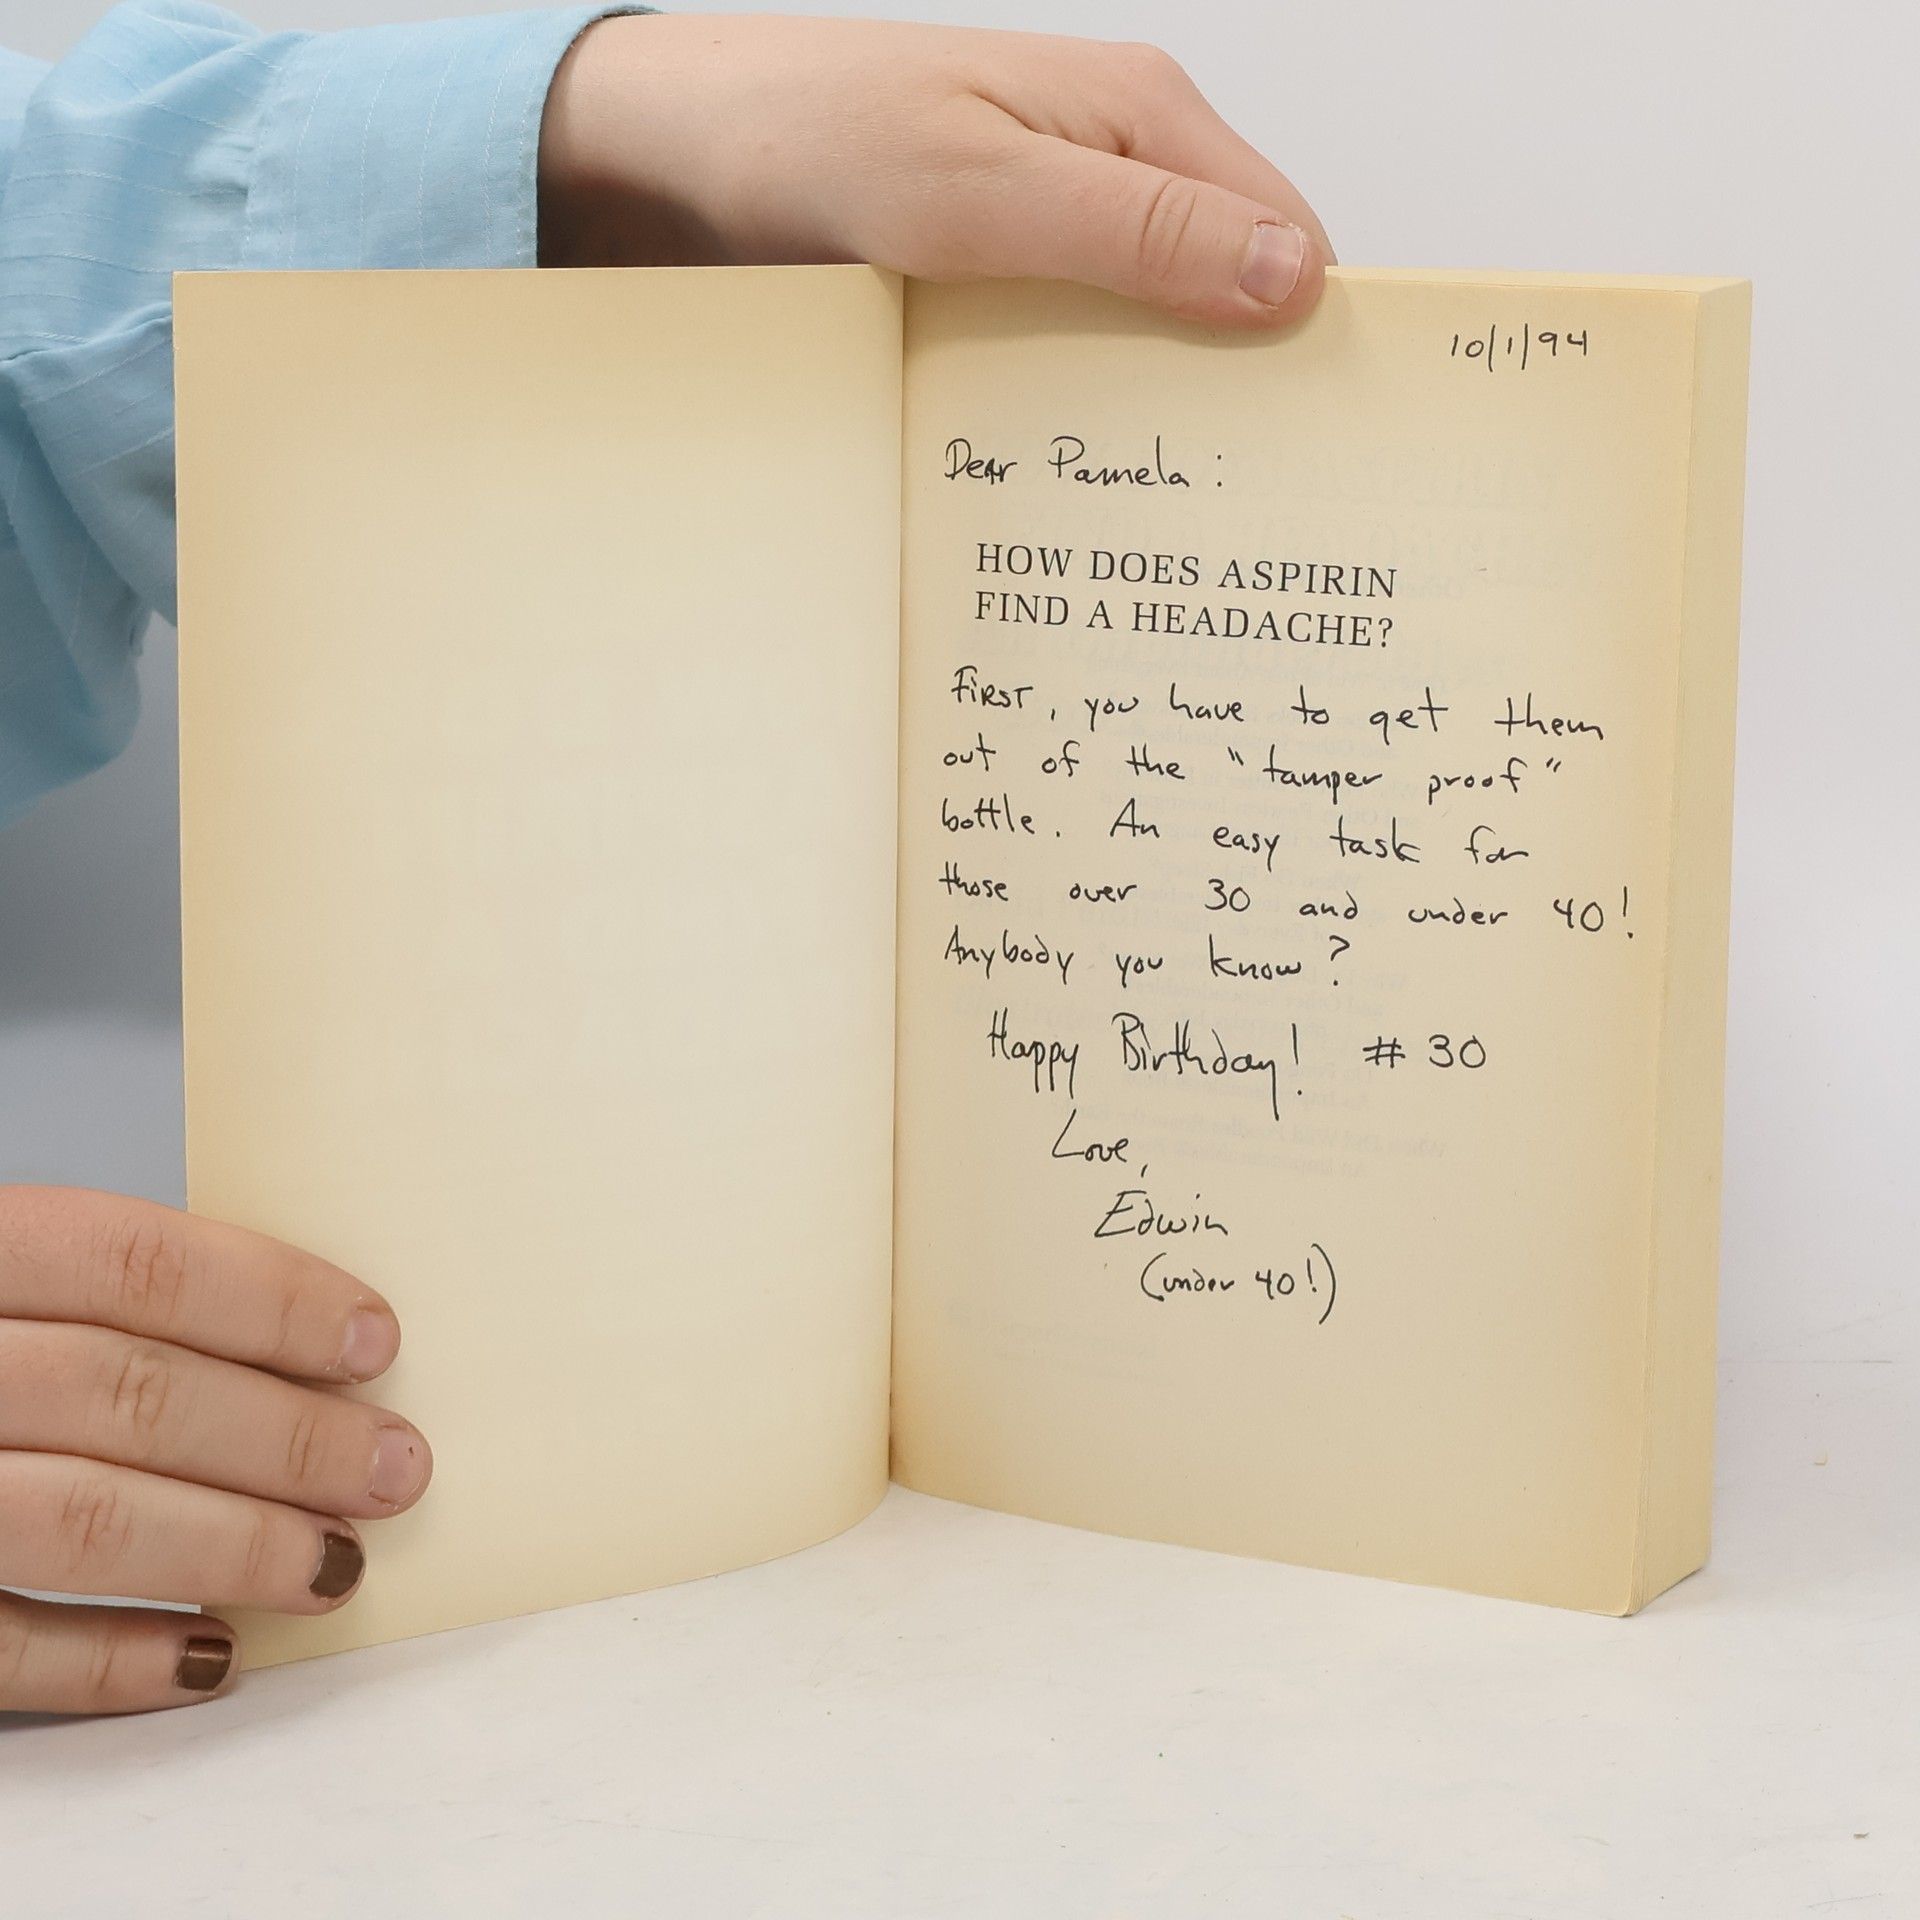 10/1/94
Dear Pamela:
HOW DOES ASPIRIN
FIND A HEADACHE?
First, you have to get them
out of the "tamper proof"
bottle. An easy task for
those over 30 and under 40!
Anybody you know?
Happy Birthday! #30
Love,
Edwin
(under 40!)